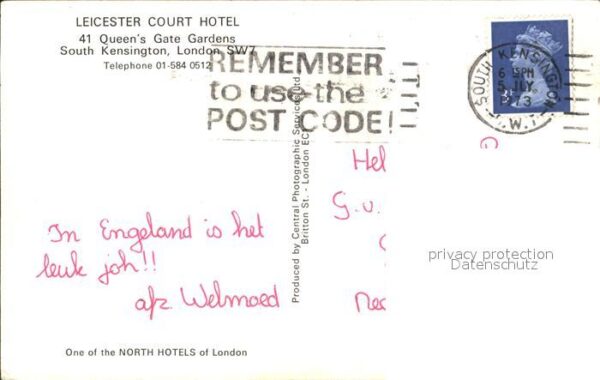 LEICESTER COURT HOTEL
41 Queen's Gate Gardens
South Kensington, London SW7
Telephone 01-584 0512
REMEMBER
to use the
POST CODE!
SOUTH KENSINGTON
6 15PM
5 JLY
S.W.7
Produced by Central Photographic Services Ltd
Britton St. - London EC1
In Engeland is het
leuk joh!!
afz Welmoed
Hel
G.v.
Ned
privacy protection
Datenschutz
One of the NORTH HOTELS of London